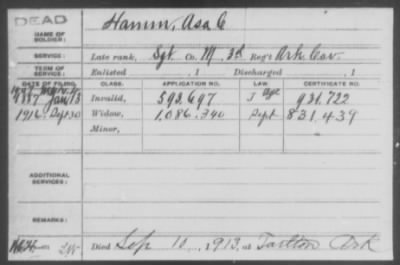 DEAD
NAME OF SOLDIER: Hamm, Asa C
SERVICE: Late rank, Sgt Co. M, 3d Reg't Ark Cav.
TERM OF SERVICE: Enlisted , 1 Discharged , 1
DATE OF FILING. CLASS. APPLICATION NO. LAW. CERTIFICATE NO.
Jan 13 Invalid, 593.697 Age 931.722
1916 Sept 30 Widow, 1,086.340 Sept 831.439
Minor,
ADDITIONAL SERVICES:
REMARKS:
Died Sep 10, 1913, at Ark